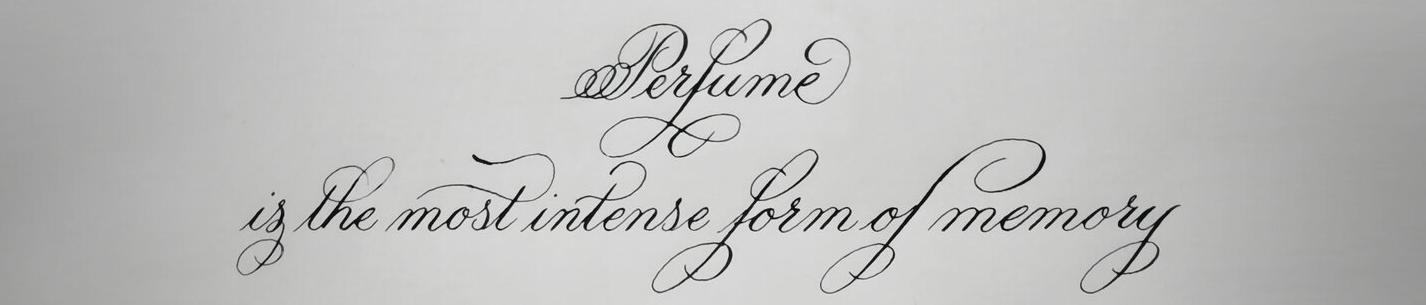 Perfume
is the most intense form of memory